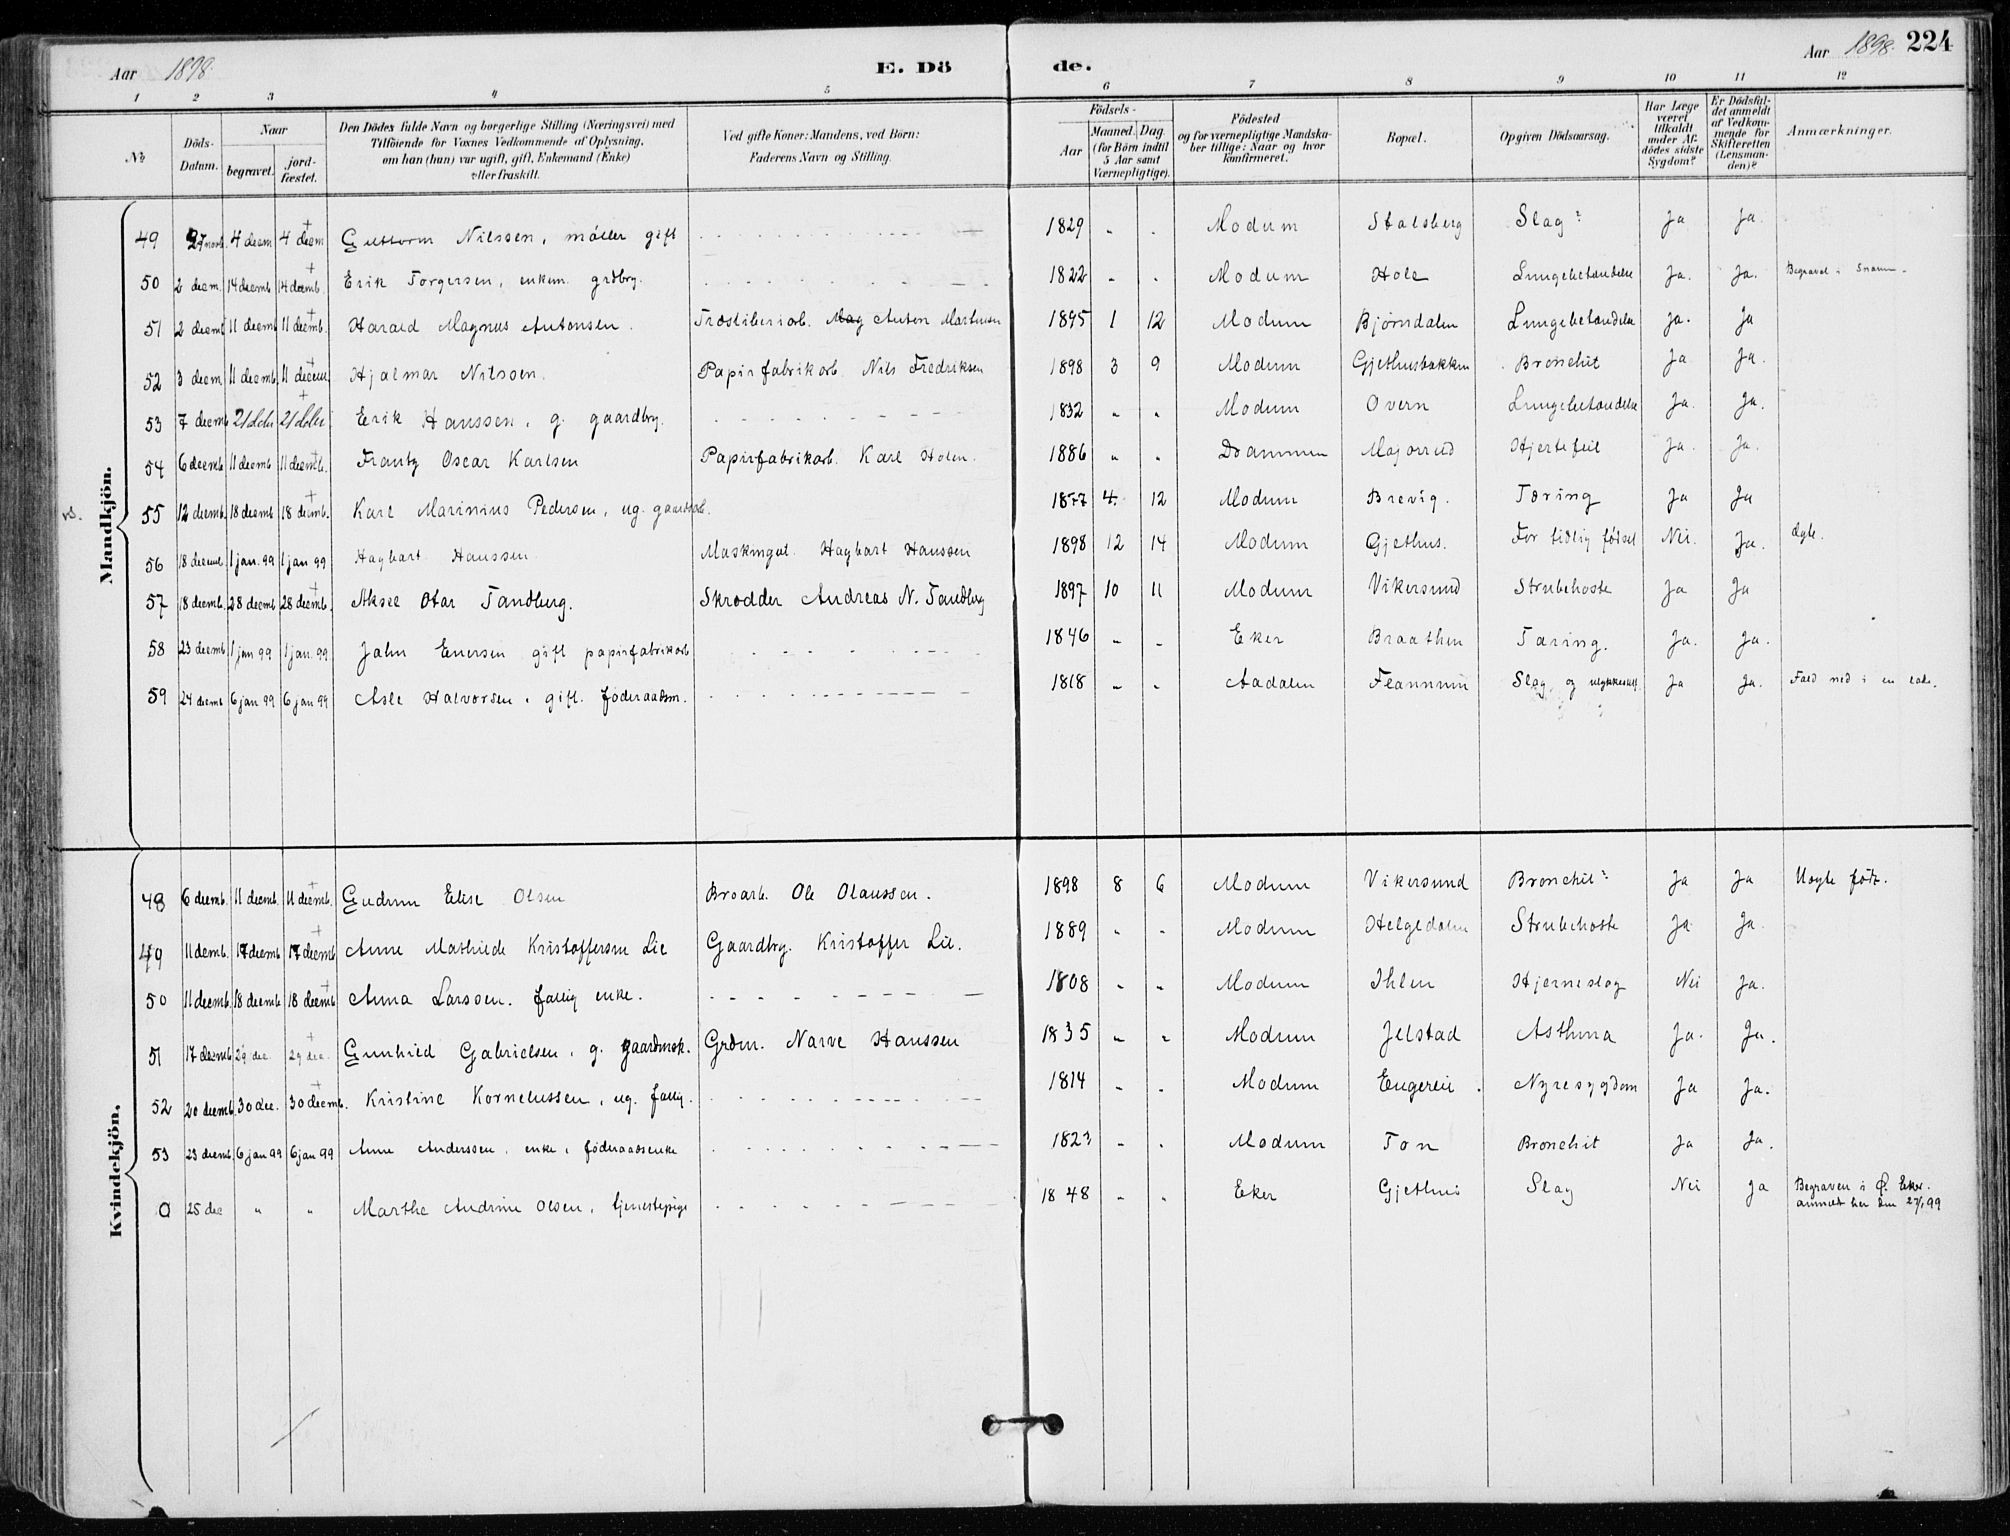 Aar 1898.
E. Dö
de.
Aar 1898. 224
1 2 3 4 5 6 7 8 9 10 11 12
No
Döds-Datum.
Naar
begravet.
jord-fæstet.
Den Dödes fulde Navn og borgerlige Stilling (Næringsvei) med
Tilföiende for Voxnes Vedkommende af Oplysning,
om han (hun) var ugift, gift, Enkemand (Enke)
eller fraskilt.
Ved gifte Koner: Mandens, ved Börn:
Faderens Navn og Stilling.
Födsels-
Aar
Maaned. Dag.
(for Börn indtil
5 Aar samt
Værnepligtige).
Födested
og for værnepligtige Mandska-
ber tillige: Naar og hvor
konfirmeret.
Bopæl.
Opgiven Dödsaarsag.
Har Læge
været
tilkaldt
under Af-
dödes sidste
Sygdom?
Er Dödsfal-
det anmeldt
af Vedkom-
mende for
Skifteretten
(Lensman-
den)?
Anmærkninger.
Mandkjön.
49 27 novb. 4 decem 4 decem Guttorm Nilssen, møller gift 1829 " " Modum Stalsberg Slag? Ja Ja.
50 2 decem. 14 decemb 14 decemb. Erik Torgersen, enkem. grdbrg. 1822 " " Modum Hole Lungebetændelse Ja. Ja. Begravet i Snarum.
51 2 decemb 11 decemb 11 decemb. Harald Magnus Antonsen. Træsliberiarb. Anton Martinsen 1895 1 12 Modum Bjørndalen Lungebetændelse Ja. Ja
52 3 decem. 11 decemb. 11 decem. Hjalmar Nilssen. Papirfabrikarb. Nils Fredriksen 1898 3 9 Modum Gjethusbakken Bronchit Ja Ja.
53 7 decemb 21 dcbr 21 dcbr Erik Hanssen, g. gaardbrg. 1832 " " Modum Overn Lungebetændelse Ja. Ja.
54 6 decemb 11 decemb 11 decemb. Frantz Oscar Karlsen Papirfabrikarb. Karl Holen. 1886 " " Drammen Majorrud Hjertefeil Ja. Ja.
55 12 decemb. 18 decemb 18 decemb. Karl Marinius Pedersen, ug. gaardarb. 1877 4. 12 Modum Brevig. Tæring Ja Ja
56 18 decemb. 1 jan. 99 1 jan 99 Hagbart Hanssen Maskingut. Hagbart Hanssen 1898 12 14 Modum Gjethus. For tidlig fødsel Nei. Ja. Ægte.
57 18 decemb. 28 decemb 28 decemb. Aksel Otar Tandberg. Skrædder Andreas N. Tandberg 1897 10 11 Modum Vikersund Strubehoste Ja Ja
58 23 decemb. 1 jan 99 1 jan. 99. John Enersen gift papirfabrikarb 1846 " " Eker Braathen Tæring. Ja. Ja.
59 24 decemb 6 jan 99 6 jan 99 Asle Halvorsen, gift. føderaadsm. 1818 " " Aadalen Flannum Slag og ulykkestilf. Ja Ja. Fald ned i en lade.
Kvindekjön.
48 6 decemb. 11 decemb. 11 decemb. Gudrun Elise Olsen Broarb. Ole Olaussen. 1898 8 6 Modum Vikersund Bronchit? Ja Ja Uægte født.
49 11 decemb. 17 decemb 17 decemb Anne Mathilde Kristoffersen Lie Gaardbrg. Kristoffer Lie. 1889 " " Modum Helgedalen Strubehoste Ja Ja.
50 11 decemb. 18 decemb 18 decemb Anna Larssen. fattig enke. 1808 " " Modum Ihlen Hjerneslag Nei Ja.
51 17 decemb 29 dec 29 dec. Gunhild Gabrielsen, g. gaardmsk. Grdm. Narve Hanssen 1835 " " Modum Jelstad Asthma Ja. Ja.
52 20 decemb. 30 dec. 30 decemb. Kristine Korneliussen, ug. fattig. 1814 " " Modum Engereie. Nyresygdom Ja Ja.
53 23 decemb. 6 jan 99 6 jan 99 Anne Anderssen, enke, føderaadsenke 1823 " " Modum Ton Bronchit Ja Ja.
0 25 dec " " Marthe Andrine Olsen, tjenestepige 1848 " " Eker Gjethus Slag Nei Ja Begraven i Ø. Eker.
anmeldt her den 27/1 99